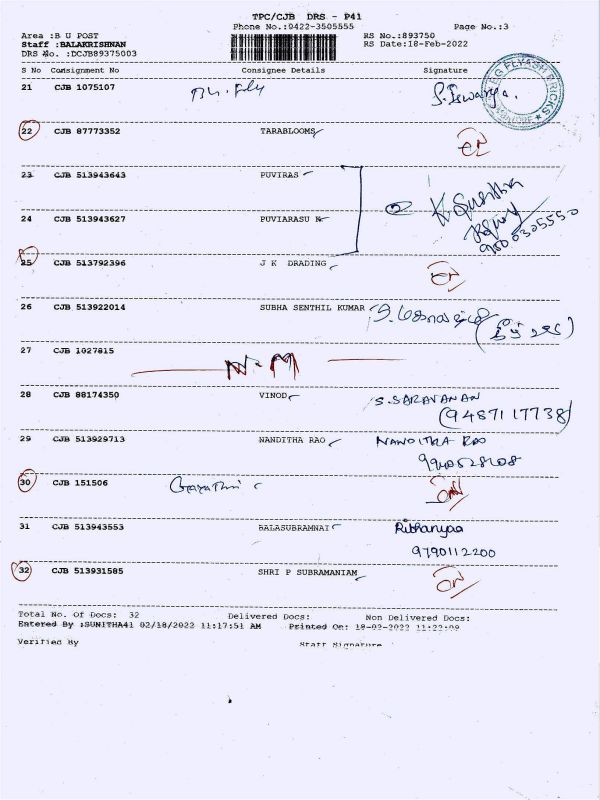 TPC/CJB DRS - P41
Phone No.:0422-3505555 Page No.:3
Area :B U POST RS No.:893750
Staff :BALAKRISHNAN RS Date:18-Feb-2022
DRS No. :DCJB89375003
S No Consignment No Consignee Details Signature
21 CJB 1075107
FLYASH BRICKS
22 CJB 87773352 TARABLOOMS
23 CJB 513943643 PUVIRAS
24 CJB 513943627 PUVIARASU N
25 CJB 513792396 J K DRADING
26 CJB 513922014 SUBHA SENTHIL KUMAR
27 CJB 1027815
N.M
28 CJB 88174350 VINOD S. SARAVANAN
(9487117738)
29 CJB 513929713 NANDITHA RAO NANDITHA RAO
30 CJB 151506 Gayathri
31 CJB 513943553 BALASUBRAMNAI Rithanyaa
9790112200
32 CJB 513931585 SHRI P SUBRAMANIAM
Total No. Of Docs: 32 Delivered Docs: Non Delivered Docs:
Entered By :SUNITHA41 02/18/2022 11:17:51 AM Printed On: 18-02-2022 11:22:09
Verified By Staff Signature